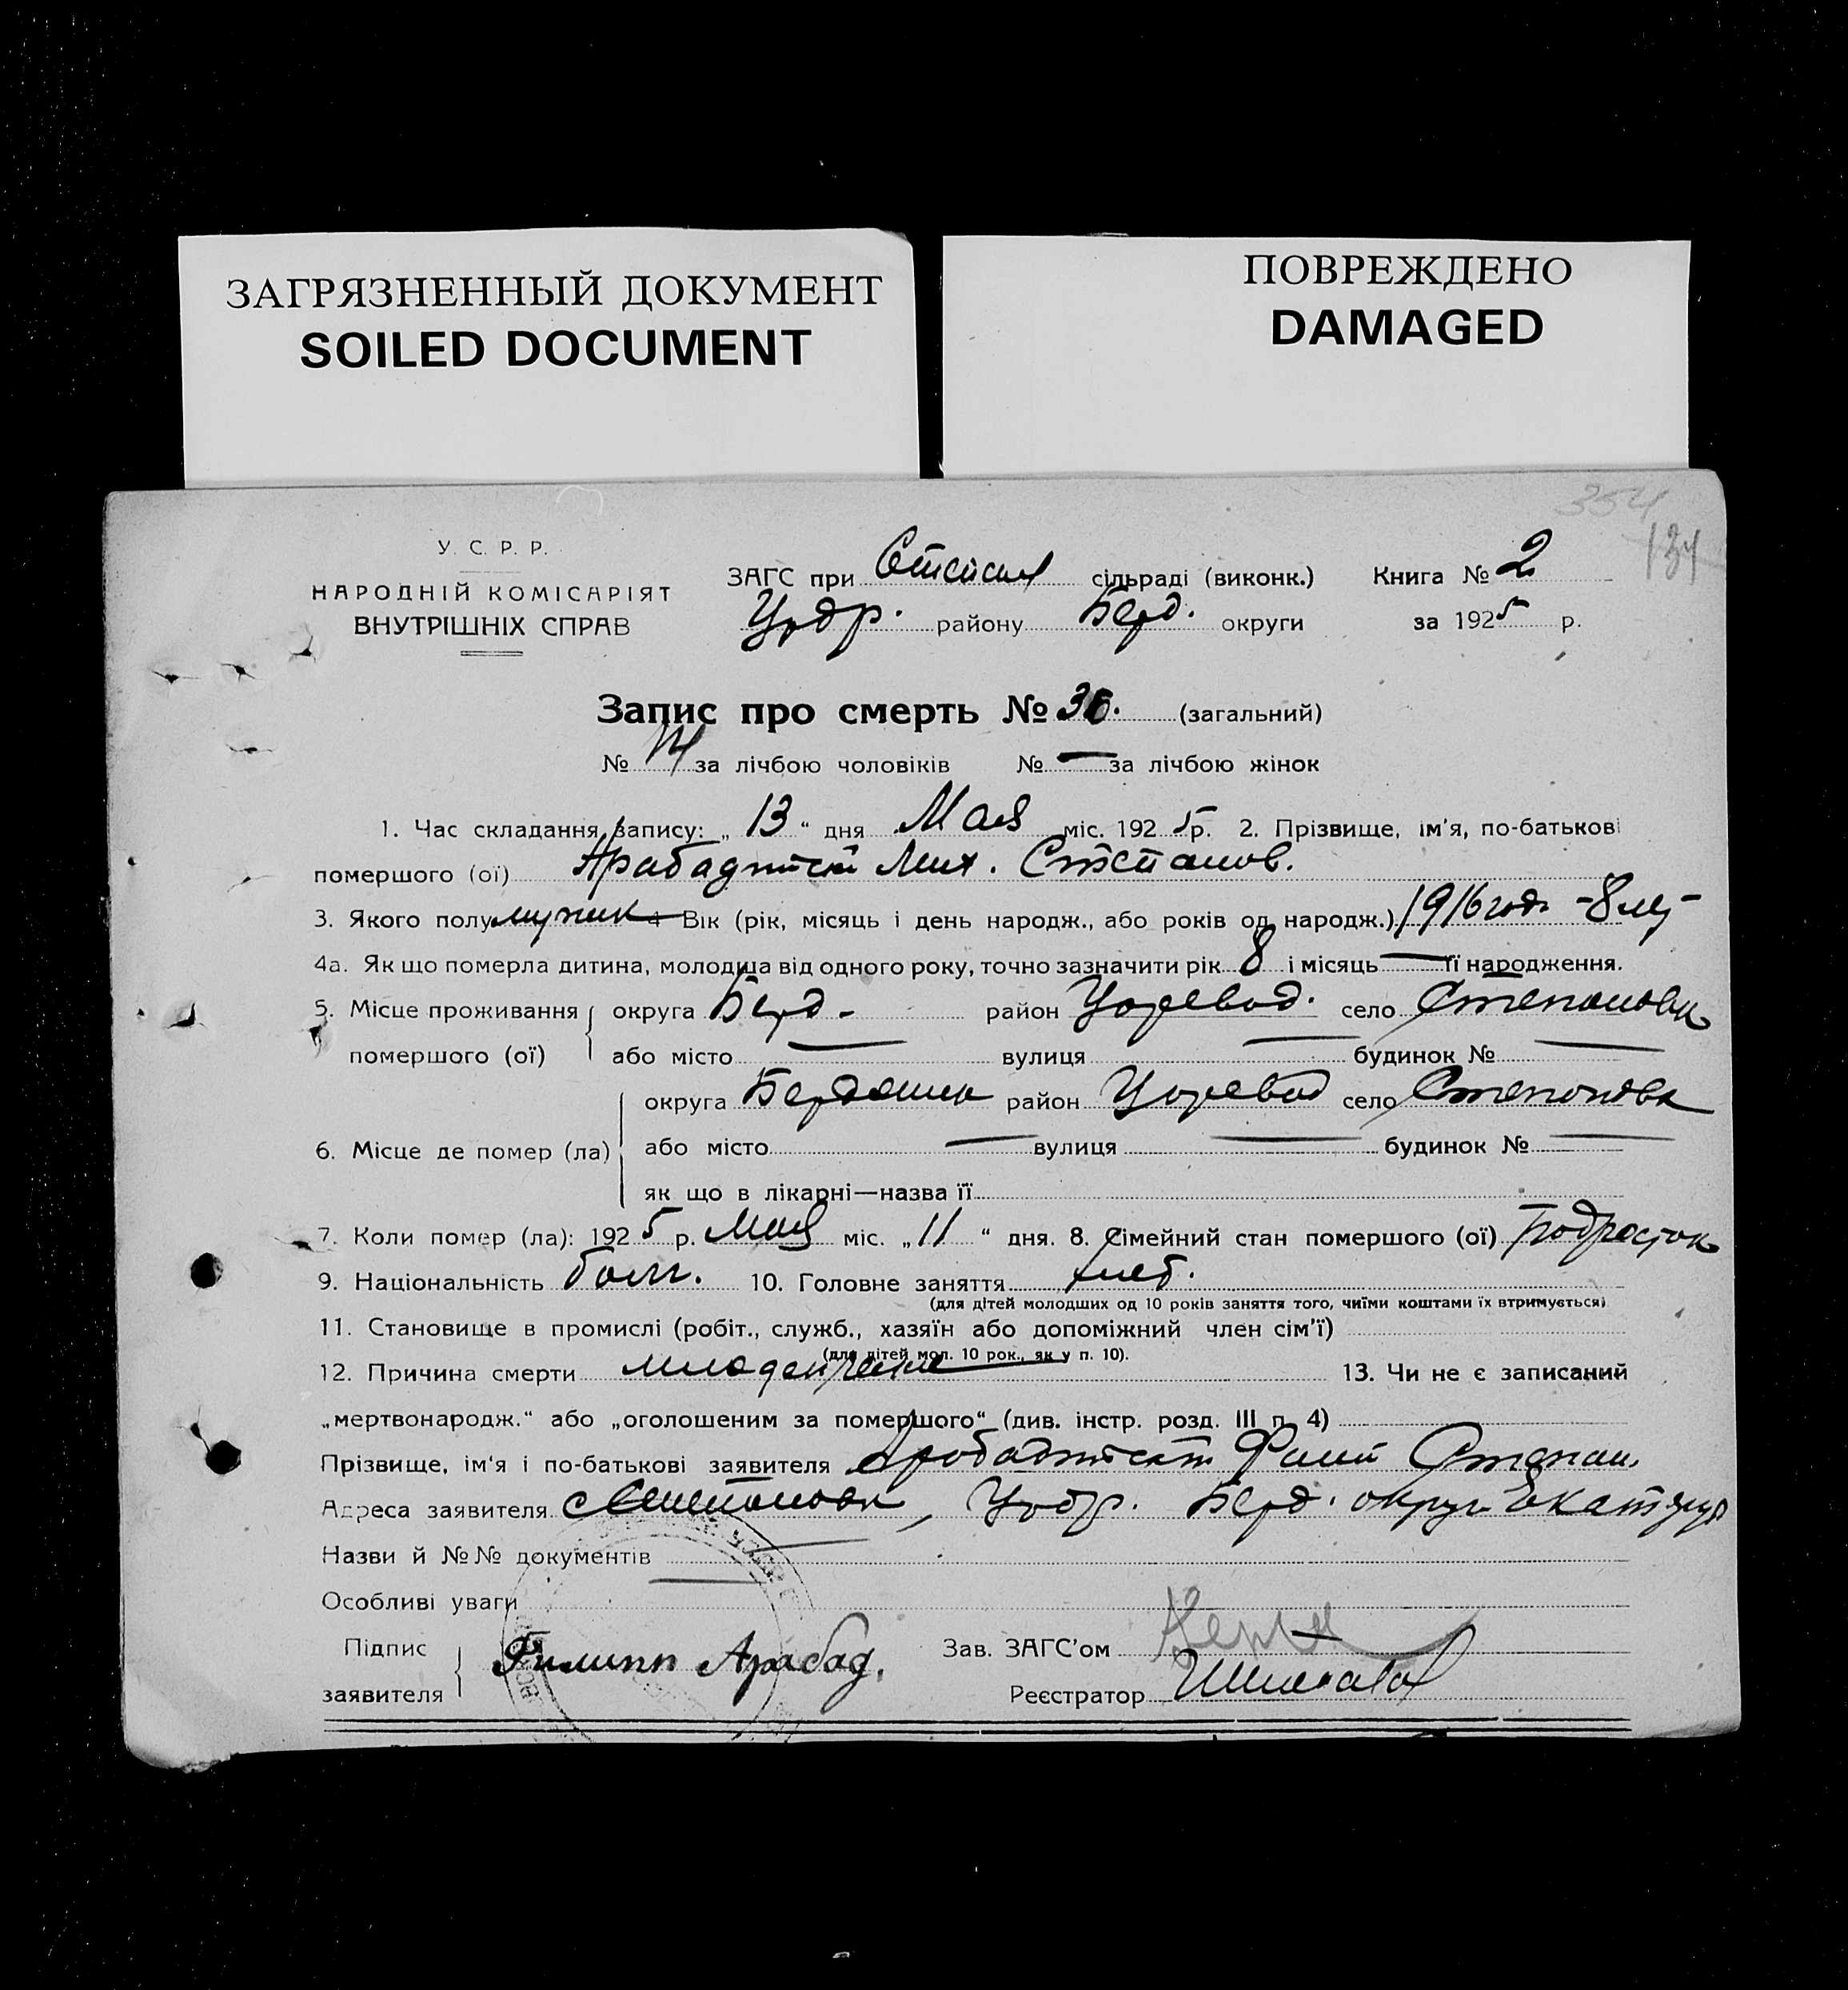 ЗАГРЯЗНЕННЫЙ ДОКУМЕНТ
SOILED DOCUMENT
ПОВРЕЖДЕНО
DAMAGED
354
131
У. С. Р. Р.
НАРОДНІЙ КОМІСАРІЯТ
ВНУТРІШНІХ СПРАВ
ЗАГС при сільраді (виконк.) Книга № 2
району Берд. округи за 1925 р.
Запис про смерть № 36. (загальний)
№ 14 за лічбою чоловіків № — за лічбою жінок
1. Час складання запису: „ 13 “ дня Мая міс. 1925 р. 2. Прізвище, ім'я, по-батькові
помершого (ої) Мих. Степанов.
3. Якого полу мужик 4 Вік (рік, місяць і день народж., або років од народж.) 1916 год. - 8 ле
4а. Як що померла дитина, молодша від одного року, точно зазначити рік 8 і місяць — її народження.
5. Місце проживання помершого (ої) округа Берд. район Царевод. село Степановка
або місто — вулиця — будинок № —
6. Місце де помер (ла) округа Бердянск район Царевод село Степановка
або місто — вулиця — будинок № —
як що в лікарні—назва її
7. Коли помер (ла): 1925 р. Мая міс. „ 11 “ дня. 8. Сімейний стан помершого (ої) Подросток
9. Національність болг. 10. Головне заняття хлеб.
(для дітей молодших од 10 років заняття того, чиїми коштами їх втримується)
11. Становище в промислі (робіт., служб., хазяїн або допоміжний член сім'ї)
(для дітей мол. 10 рок., як у п. 10).
12. Причина смерти 13. Чи не є записаний
„мертвонародж.“ або „оголошеним за помершого“ (див. інстр. розд. III п. 4)
Прізвище, ім'я і по-батькові заявителя Фили Степан.
Адреса заявителя с Степановка, Берд. округ
Назви й №№ документів —
Особливі уваги
Підпис заявителя Филипп Арабад.
Зав. ЗАГС'ом
Реєстратор